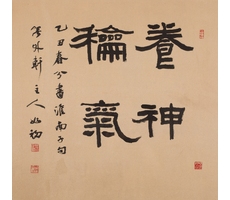 養神
龢氣
乙丑春分書淮南子句
外軒主人